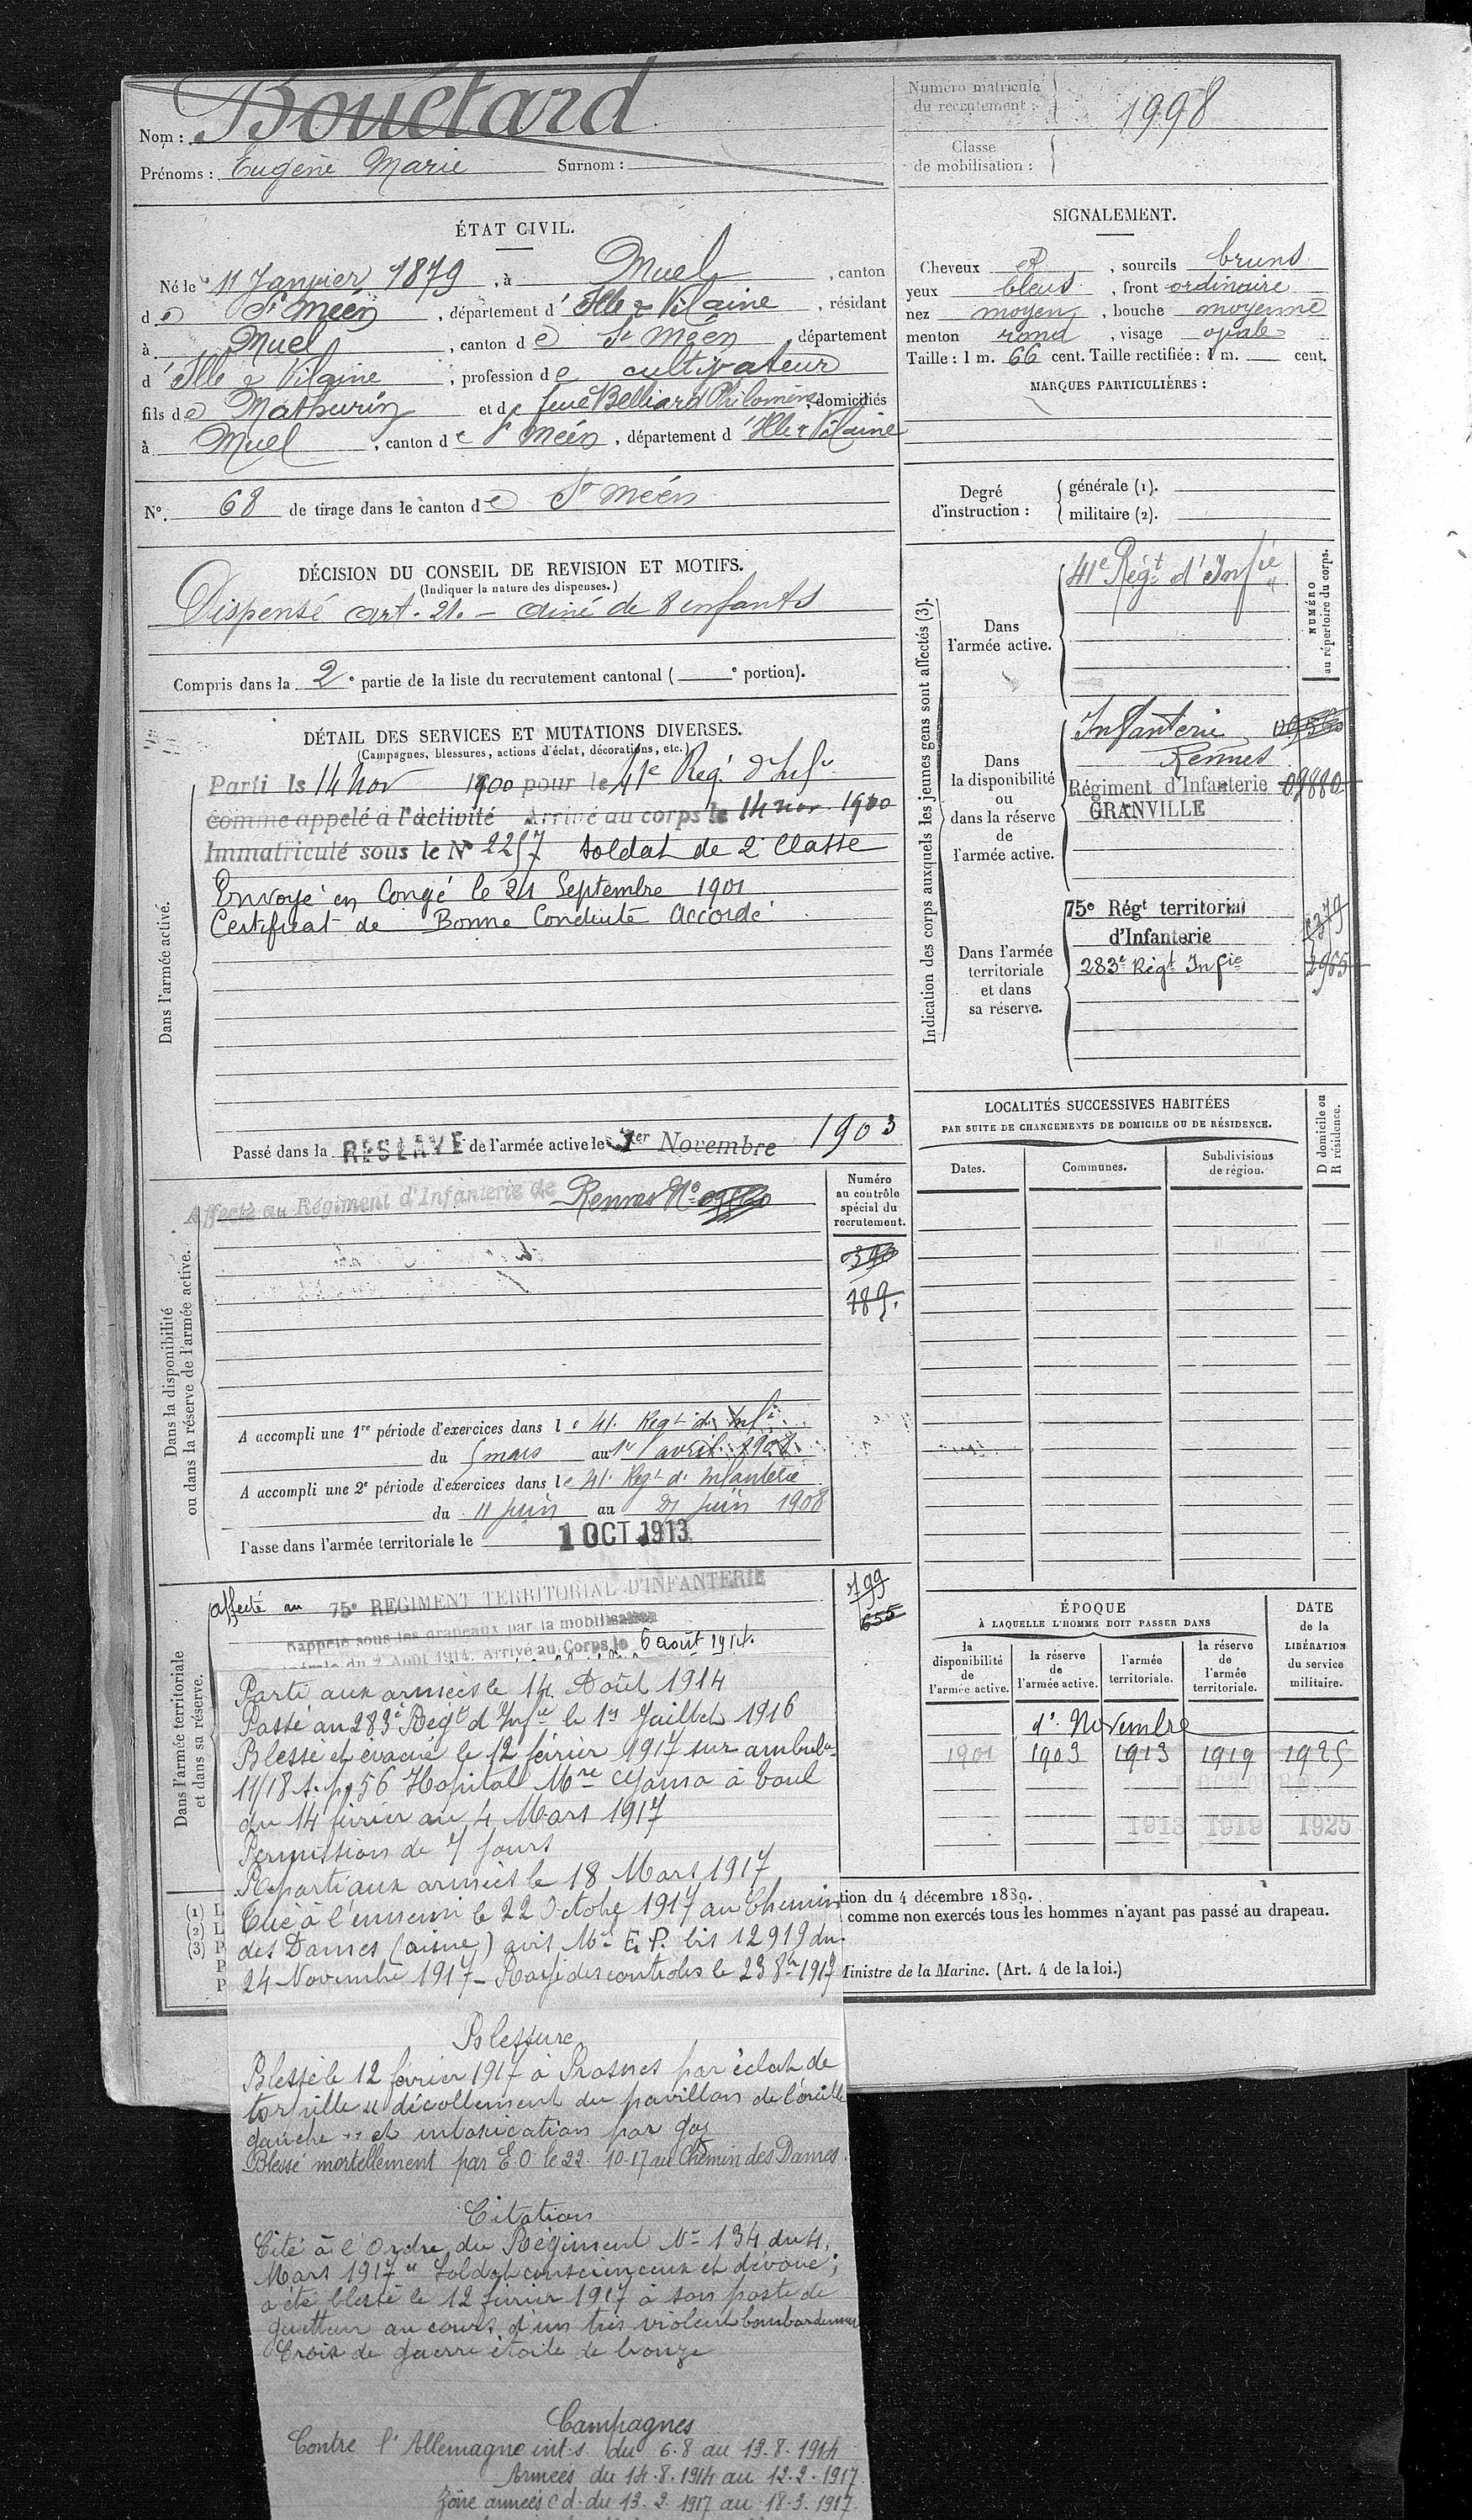 Nom : Bouétard
Prénoms : Eugène Marie Surnom :
Numéro matricule du recrutement : 1998
Classe de mobilisation :
ÉTAT CIVIL.
Né le 11 Janvier 1879, à Muel, canton
de St Méen, département d'Ille & Vilaine, résidant
à Muel, canton de St Méen département
d'Ille & Vilaine, profession de cultivateur
fils de Mathurin et de feue Belliard Philomène, domiciliés
à Muel, canton de St Méen, département d'Ille & Vilaine
N°. 68 de tirage dans le canton de St Méen
SIGNALEMENT.
Cheveux et, sourcils bruns
yeux bleus, front ordinaire
nez moyen, bouche moyenne
menton rond, visage ovale
Taille : 1 m. 66 cent. Taille rectifiée : 1 m. — cent.
MARQUES PARTICULIÈRES :
Degré d'instruction : générale (1).
militaire (2).
DÉCISION DU CONSEIL DE REVISION ET MOTIFS.
(Indiquer la nature des dispenses.)
Dispensé art. 21. – ainé de 8 enfants
Compris dans la 2e partie de la liste du recrutement cantonal (—e portion).
DÉTAIL DES SERVICES ET MUTATIONS DIVERSES.
(Campagnes, blessures, actions d'éclat, décorations, etc.)
Dans l'armée active.
Parti le 14 Nov 1900 pour le 41e Reg. d'Infie
comme appelé à l'activité Arrivé au corps le 14 nov. 1900
Immatriculé sous le N° 2257 soldat de 2e classe
Envoyé en Congé le 21 Septembre 1901
Certificat de Bonne Conduite Accordé
Passé dans la RESERVE de l'armée active le 1er Novembre 1903
Indication des corps auxquels les jeunes gens sont affectés (3).
NUMÉRO au répertoire du corps.
Dans l'armée active.
41e Régt d'Infie
Dans la disponibilité ou dans la réserve de l'armée active.
Infanterie
Rennes
Régiment d'Infanterie 09880
GRANVILLE
Dans l'armée territoriale et dans sa réserve.
75e Régt territorial
d'Infanterie
283e Régt Infie 2965
LOCALITÉS SUCCESSIVES HABITÉES
PAR SUITE DE CHANGEMENTS DE DOMICILE OU DE RÉSIDENCE.
Dates. Communes. Subdivisions de région. D domicile ou R résidence.
Dans la disponibilité ou dans la réserve de l'armée active.
Numéro au contrôle spécial du recrutement.
Affecté au Régiment d'Infanterie de Rennes N°
390
189.
A accompli une 1re période d'exercices dans le 41. Regt d'Infie
du 5 mars au 1er avril
A accompli une 2e période d'exercices dans le 41. Regt d'Infanterie
du 11 juin au 21 juin 1908
Passé dans l'armée territoriale le 1 OCT 1913
Dans l'armée territoriale et dans sa réserve.
affecté au 75e REGIMENT TERRITORIAL D'INFANTERIE 799
Rappelé sous les drapeaux par la mobilisation 655
générale du 2 Août 1914. Arrivé au Corps le 6 août 1914.
Parti aux armées le 14 Août 1914
Passé au 283e Régt d'Infie le 1er Juillet 1916
Blessé et évacué le 12 février 1917 sur ambulce
11/18 s. p. 56 Hopital Mre à Toul
du 14 février au 4 Mars 1917
Permission de 7 jours
Reparti aux armées le 18 Mars 1917
Tué à l'ennemi le 22 Octobre 1917 au Chemin
des Dames (aisne) avis Mel E.P. bis 12919 du
24 Novembre 1917 – Rayé des controles le 23 8bre 1917
ÉPOQUE
À LAQUELLE L'HOMME DOIT PASSER DANS
la disponibilité de l'armée active. la réserve de l'armée active. l'armée territoriale. la réserve de l'armée territoriale.
DATE de la LIBÉRATION du service militaire.
1er Novembre
1901 1903 1913 1919 1925
1913 1919 1925
(1) L
(2) L
(3) P
P
P
tion du 4 décembre 1889.
comme non exercés tous les hommes n'ayant pas passé au drapeau.
Ministre de la Marine. (Art. 4 de la loi.)
Blessure
Blessé le 12 février 1917 à Prosnes par éclat de
torpille "décollement du pavillon de l'oreille
gauche" et intoxication par gaz
Blessé mortellement par E.O le 22. 10.17 au Chemin des Dames.
Citation
Cité à l'Ordre du Régiment N° 134 du 4.
Mars 1917 "Soldat consciencieux et dévoué ;
a été blessé le 12 février 1917 à son poste de
guetteur au cours d'un très violent bombardement
Croix de guerre étoile de bronze
Campagnes
Contre l'Allemagne int.s. du 6.8 au 13.8.1914
Armées du 14.8.1914 au 12.2.1917
Zône armées c d. du 13.2.1917 au 18.3.1917